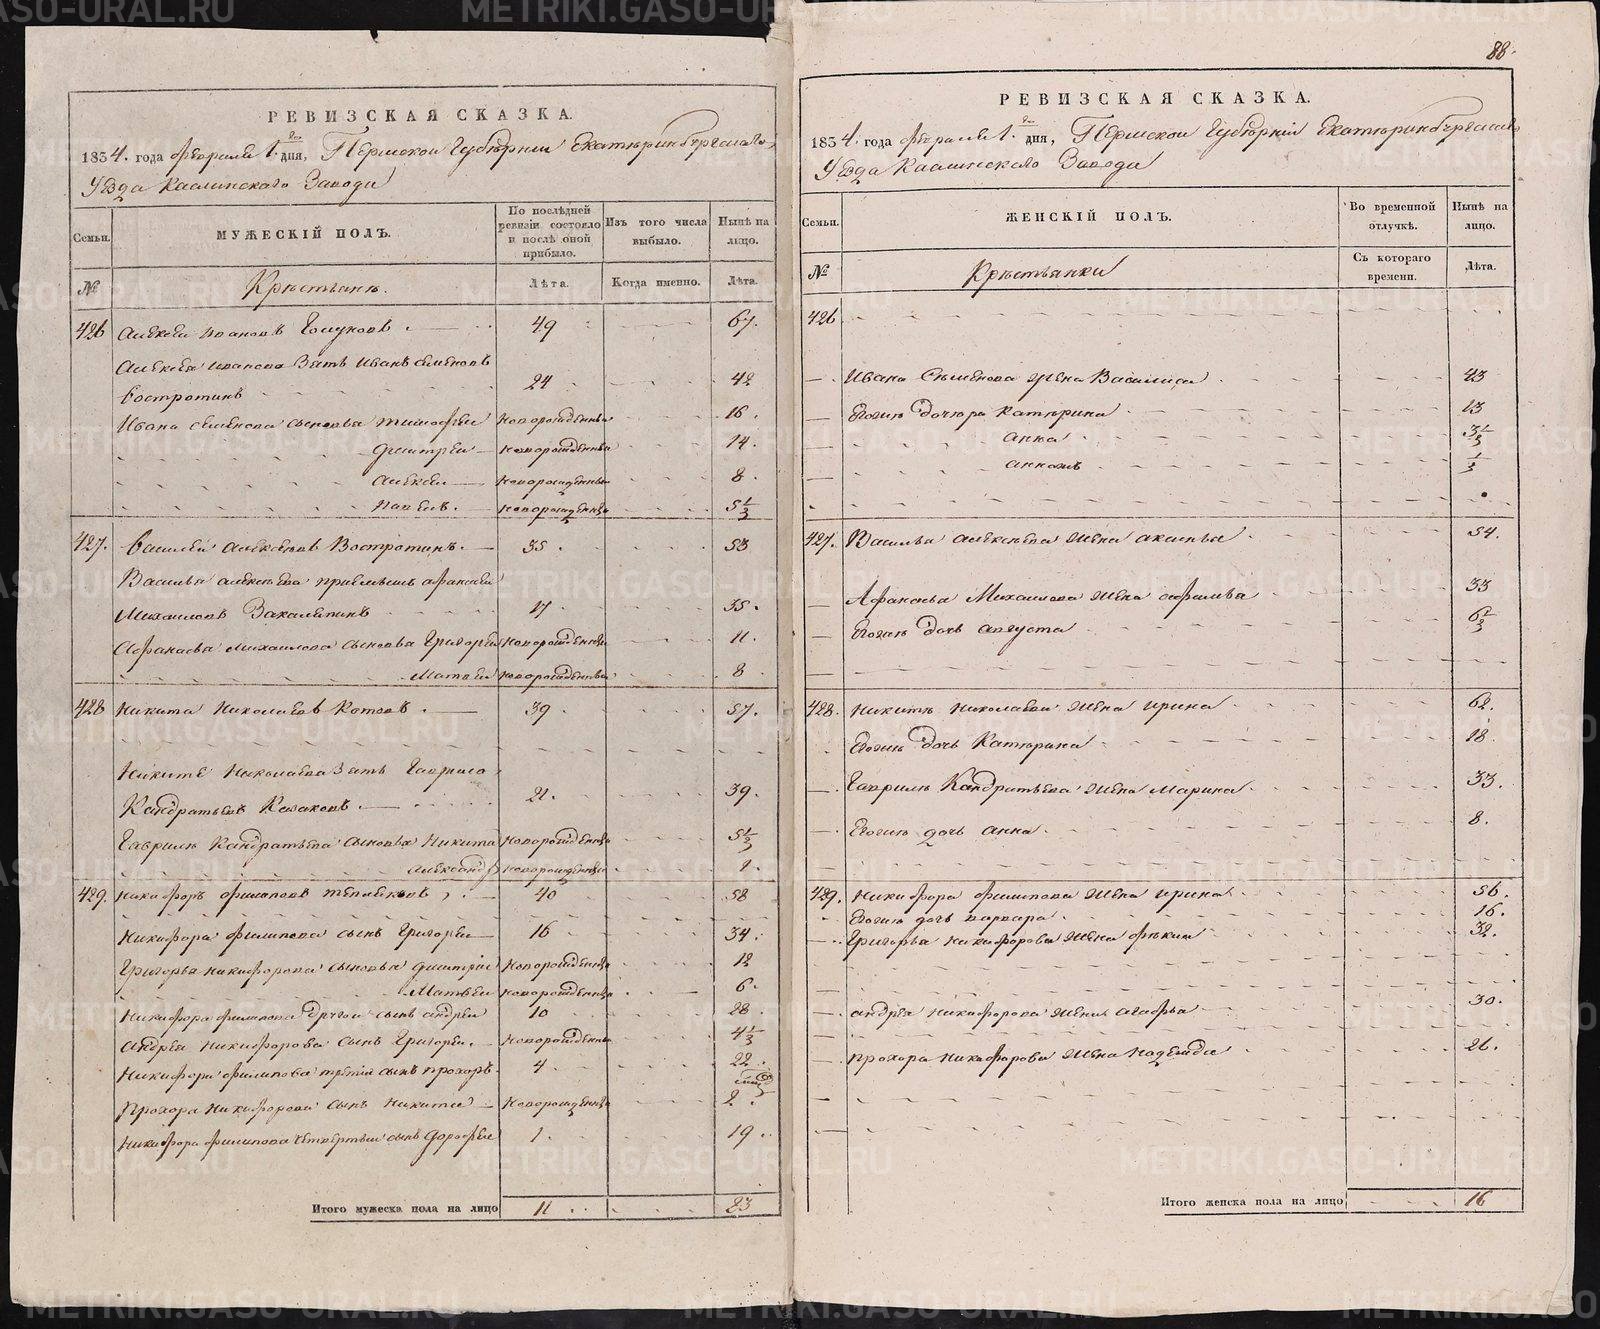 88.
РЕВИЗСКАЯ СКАЗКА.
1834. года февраля 1. дня, Пермской Губернии Екатеринбургскаго
Уезда Каслинскаго Завода
Семьи.
МУЖЕСКІЙ ПОЛЪ.
По послѣдней ревизіи состояло и послѣ оной прибыло.
Изъ того числа выбыло.
Нынѣ на лицо.
№
Крестьяне.
Лѣта.
Когда именно.
Лѣта.
426 Алексей Ивановъ 49 67.
Алексея Иванова Зять Иванъ Семеновъ
Востротинъ 24 42
Ивана Семенова сыновья Тимофей новорожденный 16.
Дмитрей новорожденный 14.
Алексей новорожденный 8
Павелъ. новорожденный 5 1/3
427. Василей Алексеевъ Востротинъ. 35. 53
Василья Алексеева приемышъ Афанасей
Михаиловъ 17. 35.
Афанасья Михаилова сыновья Григорей новорожденный 11.
Матвей новорожденный 8
428 Никита Николаевъ Котовъ. 39. 57.
Никиты Николаева Зять Гаврило
Кандратьевъ Казаковъ. 21. 39.
Гаврилы Кандратьева сыновья Никита новорожденный 5 1/3
Александр новорожденный 1.
429. Никифоръ Филиповъ 40 58
Никифора Филипова сынъ Григорей 16 34.
Григорья Никифорова сыновья Дмитрей новорожденный 12
Матвей новорожденный 6.
Никифора Филипова другой сынъ Андрей 10 28.
Андрея Никифорова сынъ Григорей. новорожденный 4 1/3
Никифора Филипова третий сынъ Прохоръ. 4. 22.
Прохора Никифорова сынъ Никита новорожденный 2.
Никифора Филипова четвертый сынъ Дорофей 1. 19.
Итого мужеска пола на лицо 11 23
РЕВИЗСКАЯ СКАЗКА.
1834. года февраля 1. дня, Пермской Губерніи Екатеринбургскаго
Уезда Каслинскаго Завода
Семьи.
ЖЕНСКІЙ ПОЛЪ.
Во временной отлучкѣ.
Нынѣ на лицо.
№
Крестьянки
Съ котораго времени.
Лѣта.
426
Ивана Семенова жена Василиса 43
Евоныя дочери Катерина 13
Анна 3 1/3
1/3
427. Василья Алексеева жена Аксинья. 54.
Афанасья Михаилова жена 33
Евоныя дочь Августа 6 1/3
428. Никиты Николаева жена Ирина 62.
Евоныя дочь Катерина 18
Гаврилы Кандратьева жена Марина 33.
Евоныя дочь Анна 8.
429. Никифора Филипова жена Ирина 56.
Евоныя дочь Варвара 16.
Григорья Никифорова жена Фекла 32.
Андрея Никифорова жена Агафья 30.
Прохора Никифорова жена Надежда 26.
Итого женска пола на лицо 16
METRIKI.GASO-URAL.RU